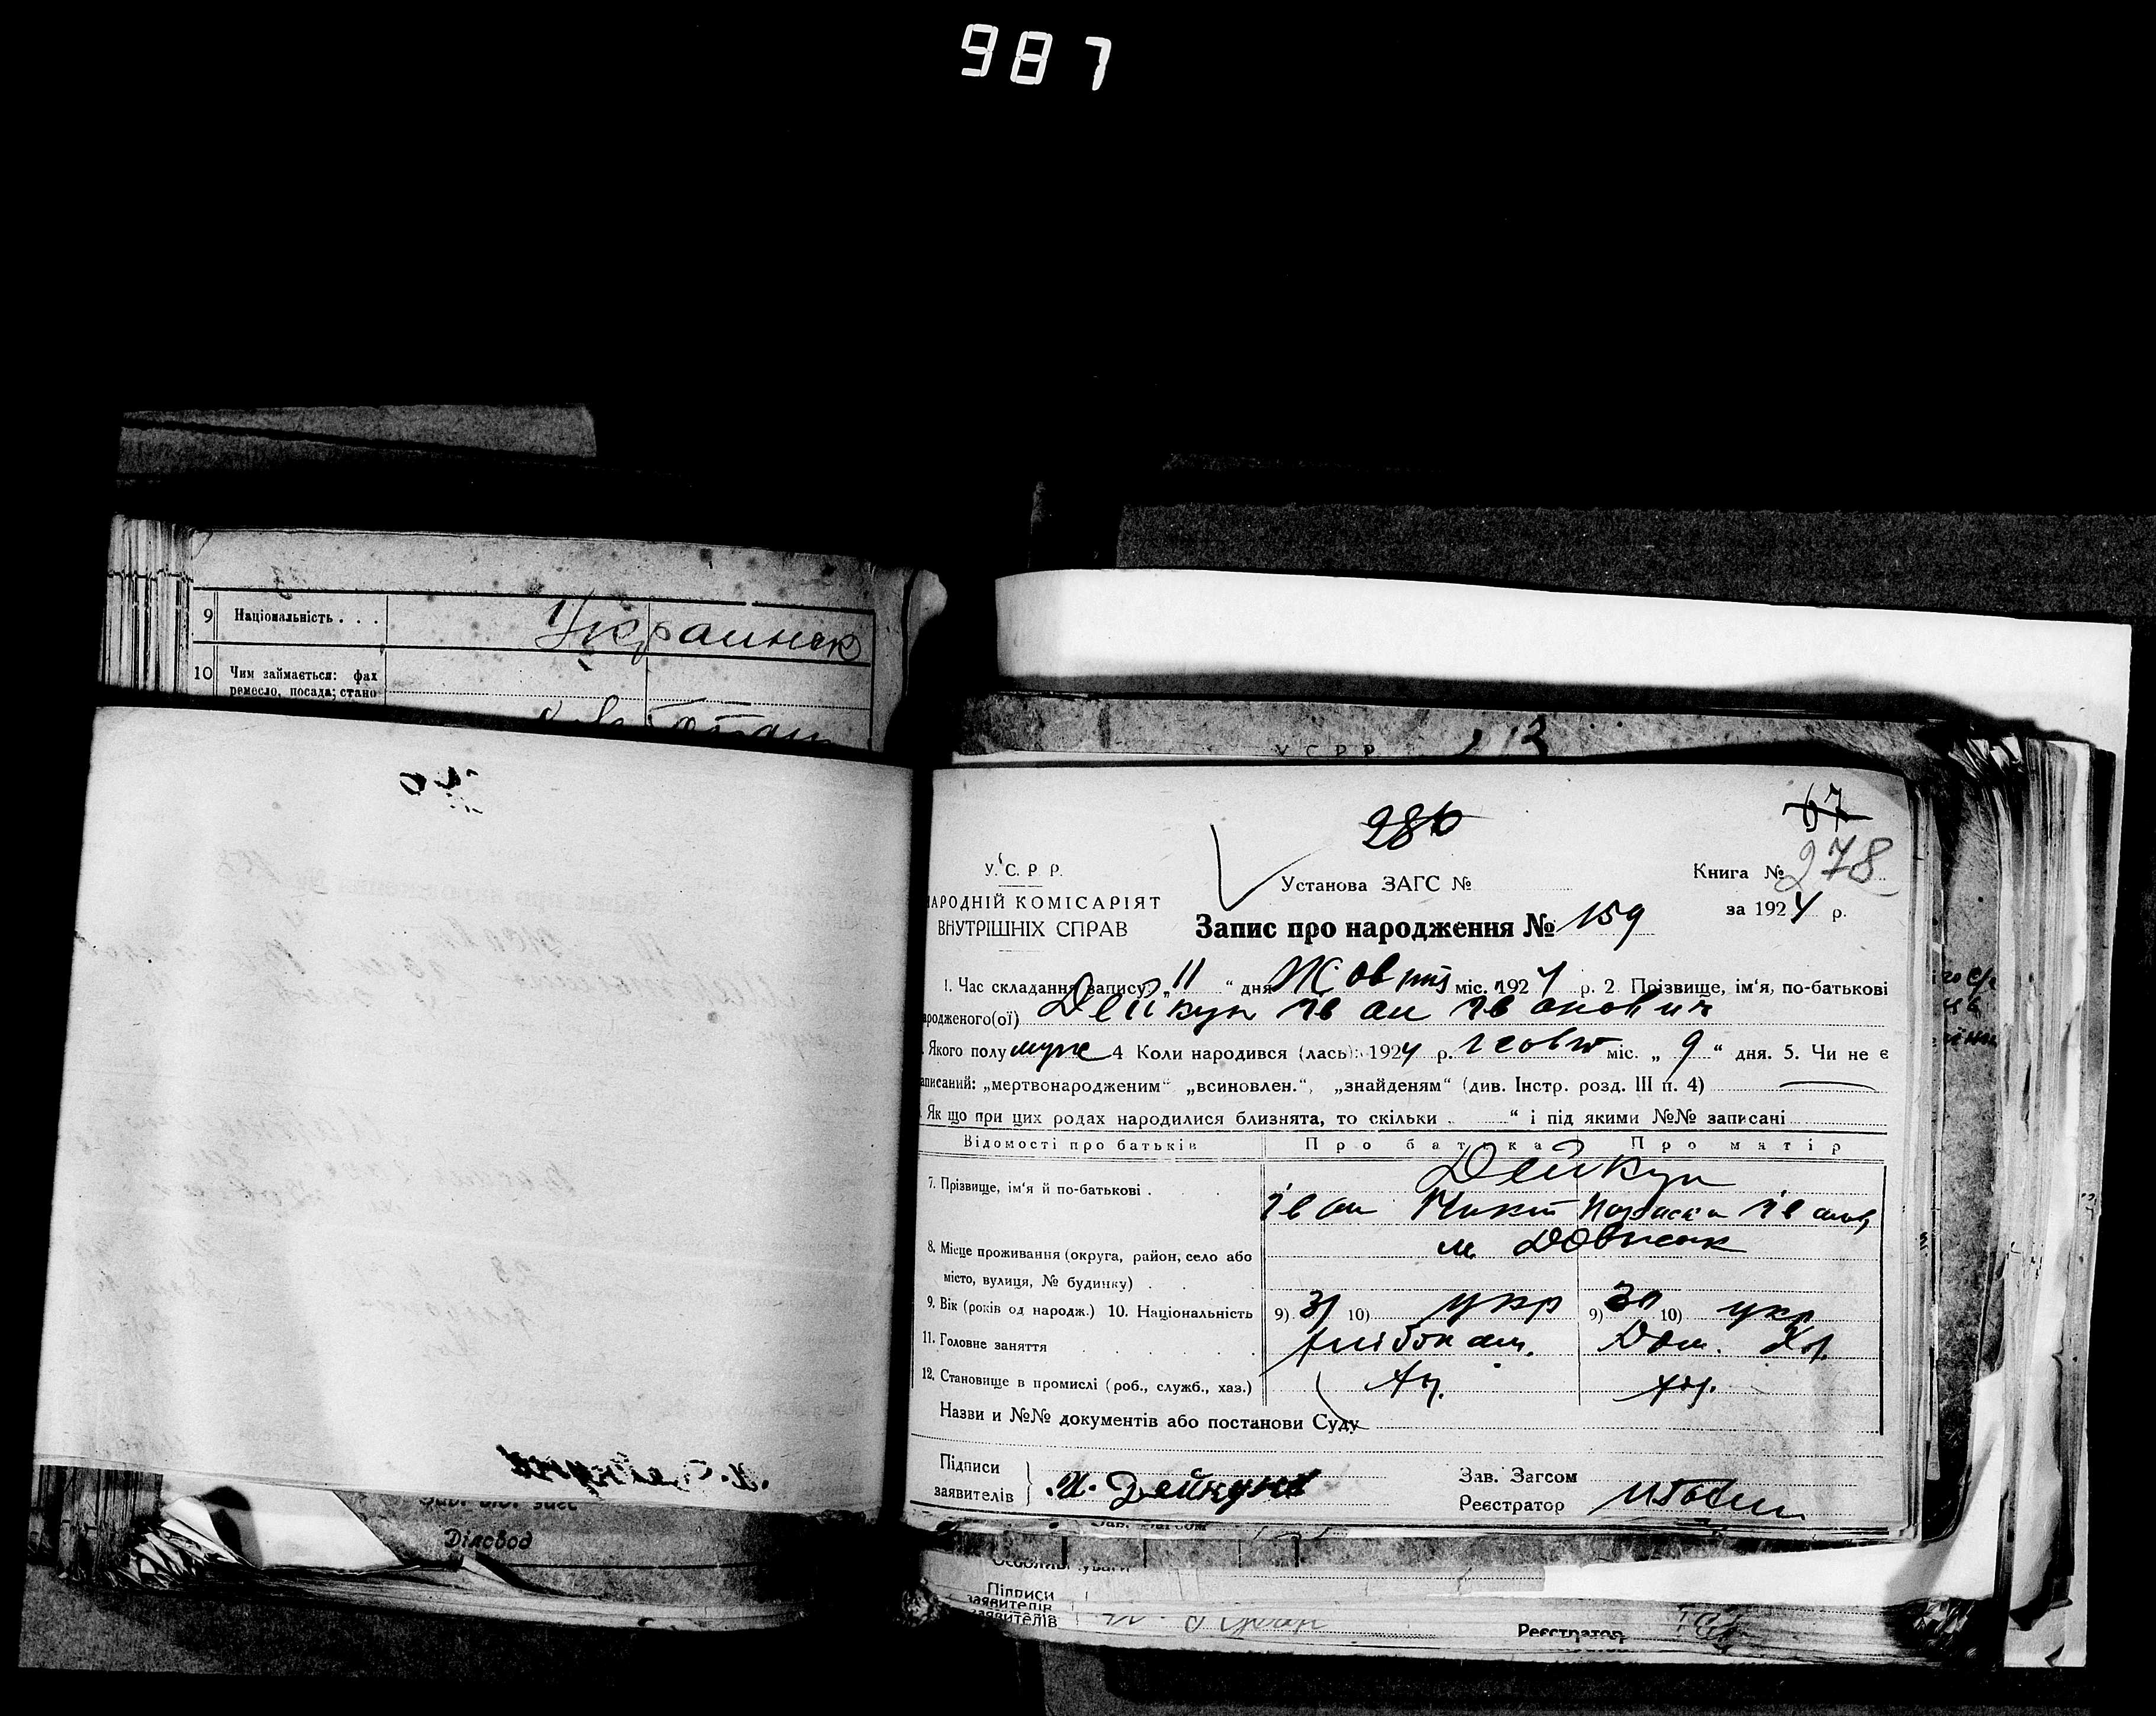 987
9 Національність . . . Украинск
10 Чим займається: фах
ремесло, посада; стано
Діловод
У С Р Р
286
67
278
У. С. Р. Р.
Установа ЗАГС №
Книга №
АРОДНІЙ КОМІСАРІЯТ
за 1924 р.
ВНУТРІШНІХ СПРАВ
Запис про народження № 159
1. Час складання запису: „11“ дня Жовтня міс. 1924 р. 2 Прізвище, ім‘я, по-батькові
ародженого(ої) Дейкун Іван Іванович
Якого полу муж 4 Коли народився (лась): 1924 р. жовт міс. „ 9 “ дня. 5. Чи не є
аписаний: „мертвонародженим“ „всиновлен.“, „знайденям“ (див. Інстр. розд. III п. 4)
Як що при цих родах народилися близнята, то скільки “ і під якими №№ записані
Відомості про батьків Про батька Про матір
Дейкун
7. Прізвище, ім‘я й по-батькові . Іван Никит Параска Іванов
8. Місце проживання (округа, район, село або м Довжик
місто, вулиця, № будинку) .
9. Вік (років од народж.) 10. Національність 9) 31 10) укр 9) 30 10) укр
11. Головне заняття хлібопаш. Дом. Хз.
12. Становище в промислі (роб., служб., хаз.)
Назви и №№ документів або постанови Суду
Підписи
заявителів И. Дейкун
Зав. Загсом
Реєстратор
Підписи
заявителів
заявителів
Реєстратор